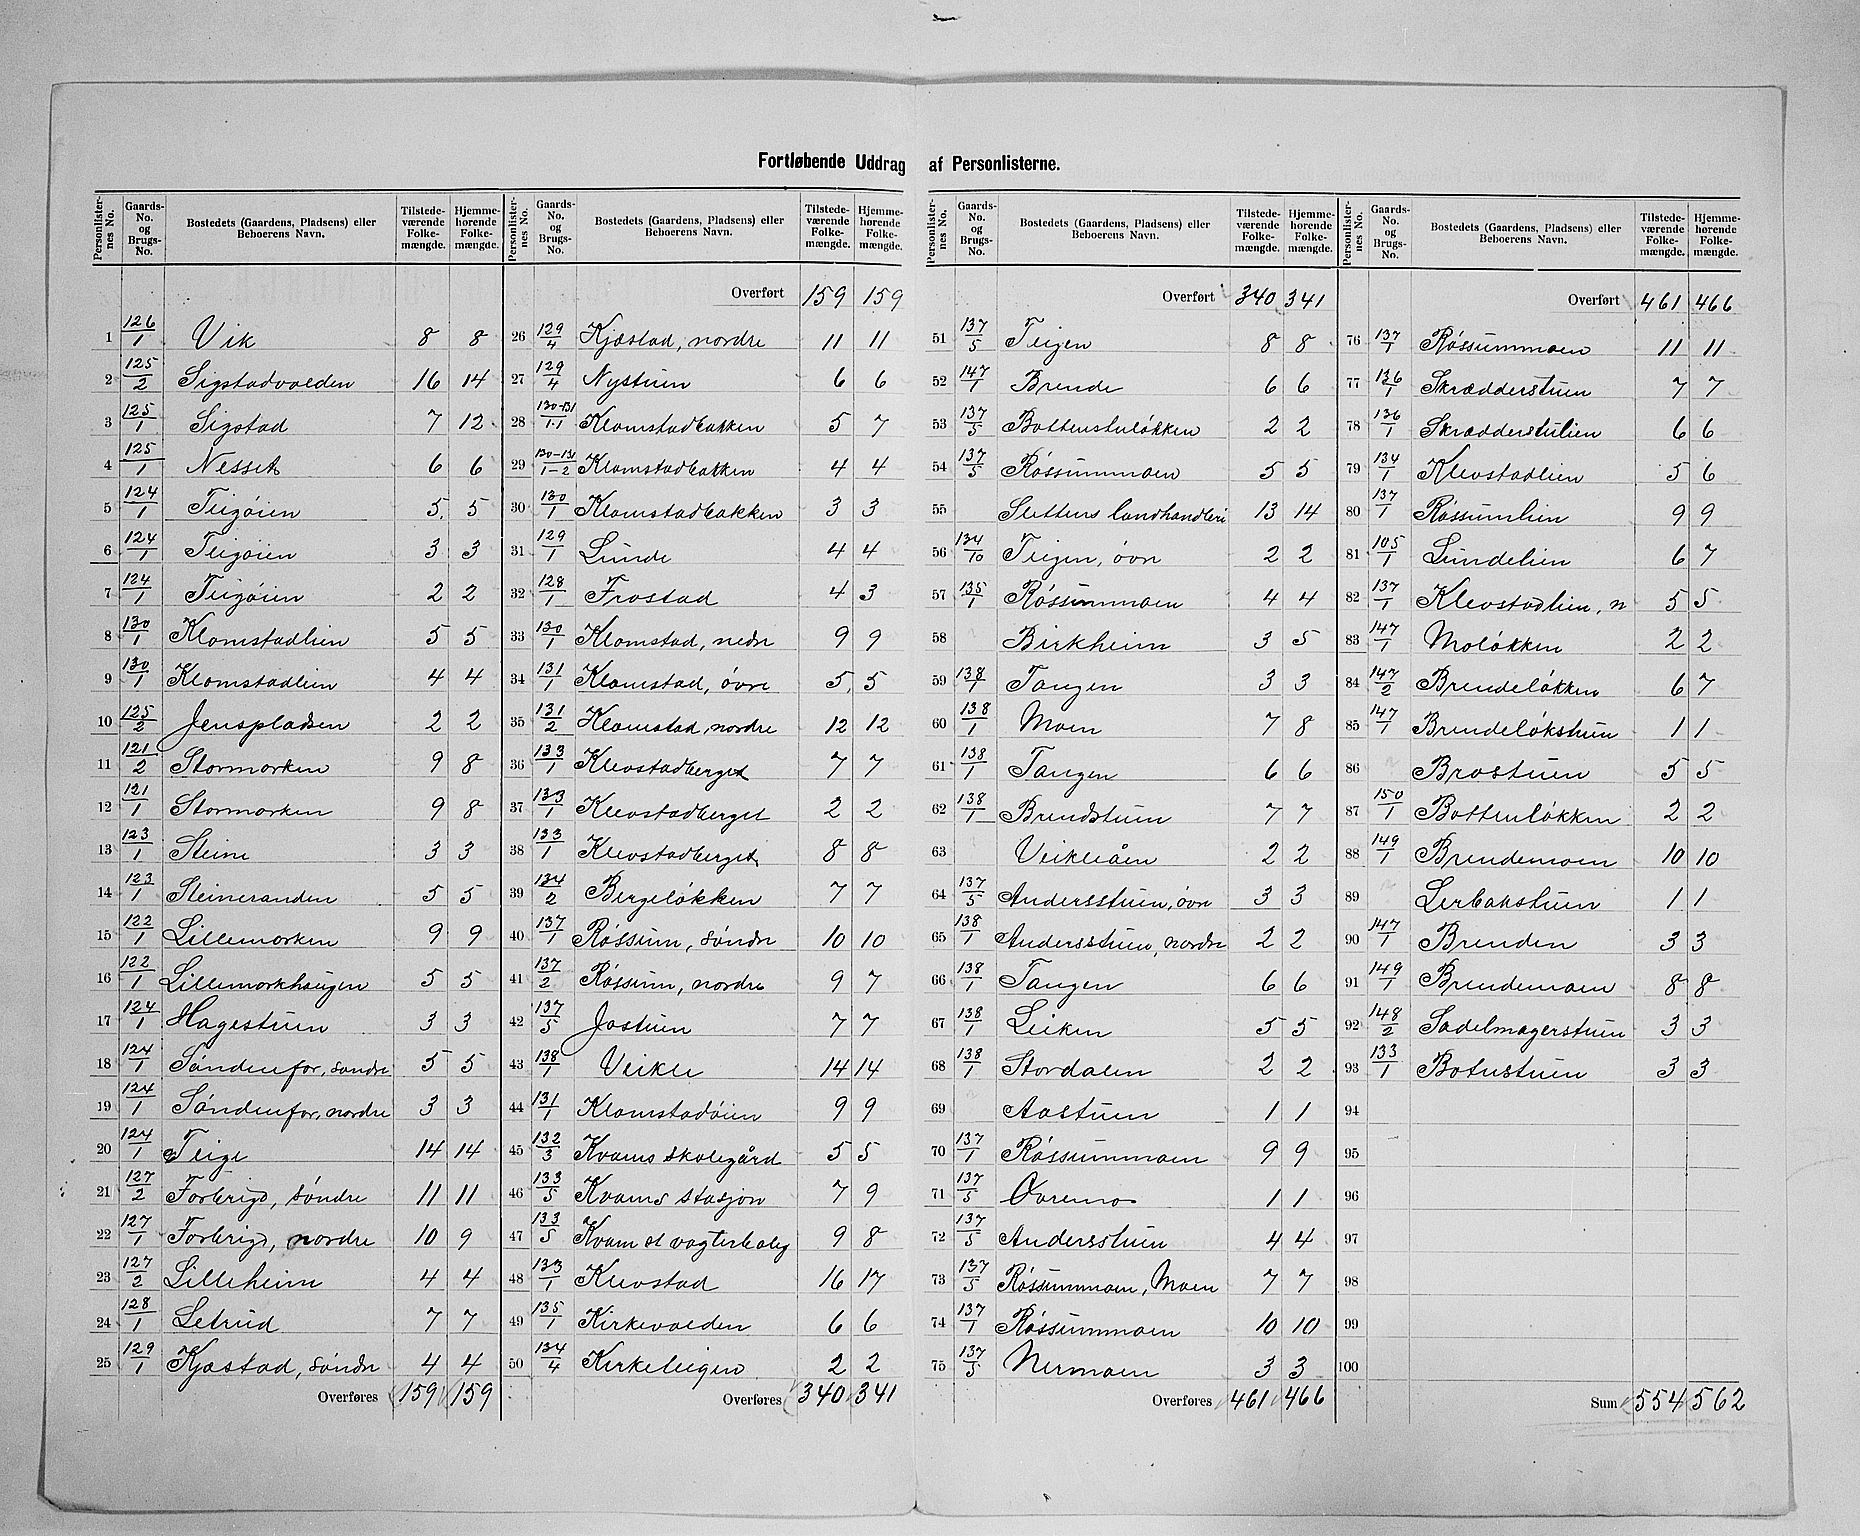 Fortløbende Uddrag af Personlisterne.
Personlister-nes No. | Gaards-No. og Brugs-No. | Bostedets (Gaardens, Pladsens) eller Beboerens Navn. | Tilstede-værende Folke-mængde. | Hjemme-hørende Folke-mængde.
1 126/1 Vik 8 8
2 125/2 Sigstadvolden 16 14
3 125/1 Sigstad 7 12
4 125/1 Nesset 6 6
5 124/1 Teigöien 5 5
6 124/1 Teigöien 3 3
7 124/1 Teigöien 2 2
8 130/1 Klomstadlien 5 5
9 130/1 Klomstadlien 4 4
10 125/2 Jenspladsen 2 2
11 121/2 Stormorken 9 8
12 121/1 Stormorken 9 8
13 123/1 Steine 3 3
14 123/1 Steineranden 5 5
15 122/1 Lillemorken 9 9
16 122/1 Lillemorkhaugen 5 5
17 124/1 Hagestuen 3 3
18 124/1 Söndenfor, söndre 5 5
19 124/1 Söndenfor, nordre 3 3
20 124/1 Teige 14 14
21 127/2 Forbrigd, söndre 11 11
22 127/1 Forbrigd, nordre 10 9
23 127/2 Lilleheim 4 4
24 128/1 Letrud 7 7
25 129/1 Kjæstad, söndre 4 4
Overføres 159 159
Personlister-nes No. | Gaards-No. og Brugs-No. | Bostedets (Gaardens, Pladsens) eller Beboerens Navn. | Tilstede-værende Folke-mængde. | Hjemme-hørende Folke-mængde.
Overført 159 159
26 129/4 Kjæstad, nordre 11 11
27 129/4 Nystuen 6 6
28 130-131/1-1 Klomstadbakken 5 7
29 130-131/1-2 Klomstadbakken 4 4
30 130/1 Klomstadbakken 3 3
31 129/1 Lunde 4 4
32 128/1 Frostad 4 3
33 130/1 Klomstad, nedre 9 9
34 131/1 Klomstad, övre 5 5
35 131/2 Klomstad, nordre 12 12
36 133/1 Klevstadberget 7 7
37 133/1 Klevstadberget 2 2
38 133/1 Klevstadberget 8 8
39 134/2 Bergelökken 7 7
40 137/1 Røssum, söndre 10 10
41 137/2 Røssum, nordre 9 7
42 137/5 Jostuen 7 7
43 138/1 Veikle 14 14
44 131/1 Klomstadöien 9 9
45 132/3 Kvams skolegård 5 5
46 133/5 Kvams stasjon 7 9
47 133/5 Kvam st vogterbolig 9 8
48 133/1 Klevstad 16 17
49 135/1 Kirkevolden 6 6
50 134/4 Kirketeigen 2 2
Overføres 340 341
Personlister-nes No. | Gaards-No. og Brugs-No. | Bostedets (Gaardens, Pladsens) eller Beboerens Navn. | Tilstede-værende Folke-mængde. | Hjemme-hørende Folke-mængde.
Overført 340 341
51 137/5 Teigen 8 8
52 147/1 Brende 6 6
53 137/5 Bottenstulökken 2 2
54 137/5 Røssummoen 5 5
55 Slettens landhandleri 13 14
56 134/10 Teigen, övre 2 2
57 135/1 Røssummoen 4 4
58 Birkheim 3 5
59 138/1 Tangen 3 3
60 138/1 Moen 7 8
61 138/1 Tangen 6 6
62 138/1 Brendstuen 7 7
63 Veikleåen 2 2
64 137/5 Andersstuen, övre 3 3
65 138/1 Andersstuen, nordre 2 2
66 138/1 Tangen 6 6
67 138/1 Leiken 5 5
68 138/1 Stordalen 2 2
69 Aastuen 1 1
70 137/1 Røssummoen 9 9
71 137/5 Övremo 1 1
72 137/5 Andersstuen 4 4
73 137/5 Røssummoen, Moen 7 7
74 137/1 Røssummoen 10 10
75 137/5 Nermoen 3 3
Overføres 461 466
Personlister-nes No. | Gaards-No. og Brugs-No. | Bostedets (Gaardens, Pladsens) eller Beboerens Navn. | Tilstede-værende Folke-mængde. | Hjemme-hørende Folke-mængde.
Overført 461 466
76 137/1 Røssummoen 11 11
77 136/1 Skrædderstuen 7 7
78 136/1 Skrædderstulien 6 6
79 134/1 Klevstadlien 5 6
80 137/1 Røssumlien 9 9
81 105/1 Lundelien 6 7
82 137/1 Klevstadlien, n 5 5
83 147/1 Molökken 2 2
84 147/2 Brendelökken 6 7
85 147/1 Brendelökstuen 1 1
86 Brostuen 5 5
87 150/1 Bottenlökken 2 2
88 149/1 Brendemoen 10 10
89 Lerbakstuen 1 1
90 147/1 Brenden 3 3
91 149/1 Brendemoen 8 8
92 148/2 Sadelmagerstuen 3 3
93 133/1 Botnstuen 3 3
94
95
96
97
98
99
100
Sum 554 562